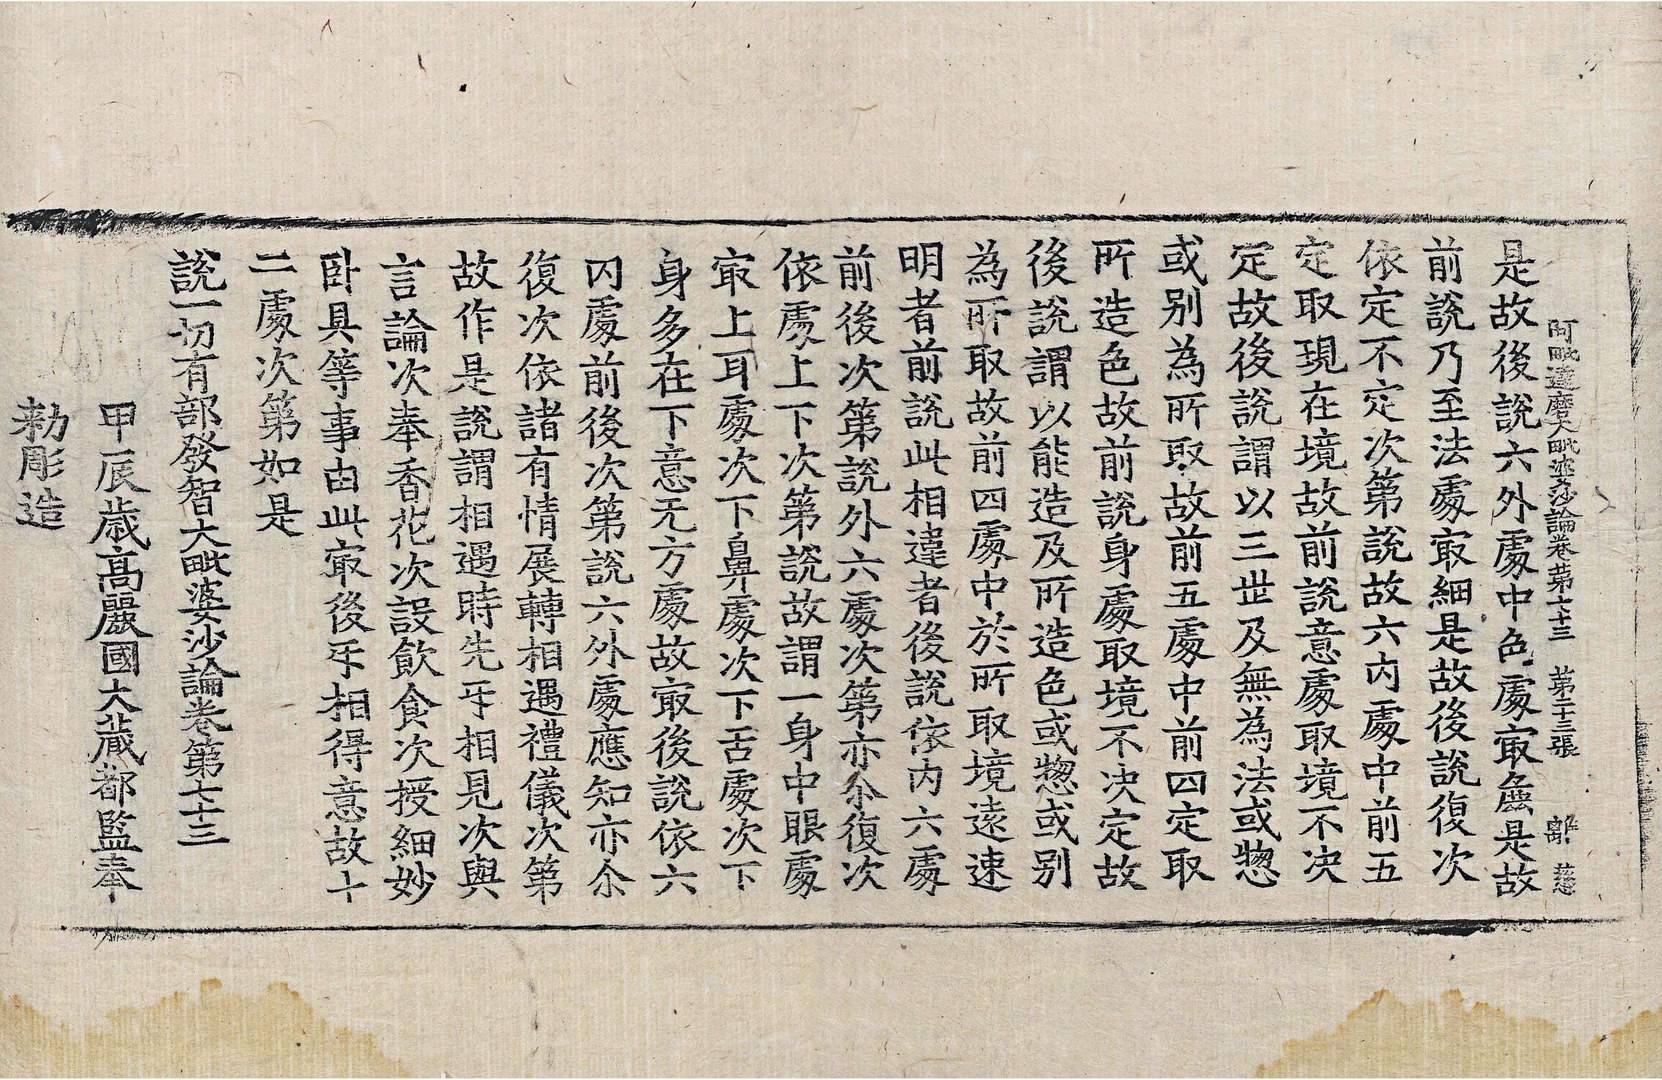 阿毗達磨大毗婆沙論卷第七十三 第二十三張 離 慈
是故後說六外處中色處㝡麁是故
前說乃至法處㝡細是故後說復次
依定不定次第說故六內處中前五
定取現在境故前說意處取境不決
定故後說謂以三世及無為法或惣
或別為所取故前五處中前四定取
所造色故前說身處取境不決定故
後說謂以能造及所造色或惣或別
為所取故前四處中於所取境遠速
明者前說此相違者後說依內六處
前後次第說外六處次第亦尒復次
依處上下次第說故謂一身中眼處
㝡上耳處次下鼻處次下舌處次下
身多在下意无方處故㝡後說依六
內處前後次第說六外處應知亦尒
復次依諸有情展轉相遇禮儀次第
故作是說謂相遇時先㸦相見次與
言論次奉香花次設飲食次授細妙
卧具等事由此㝡後㸦相得意故十
二處次第如是
說一切有部發智大毗婆沙論卷第七十三
甲辰歲高麗國大藏都監奉
勑彫造